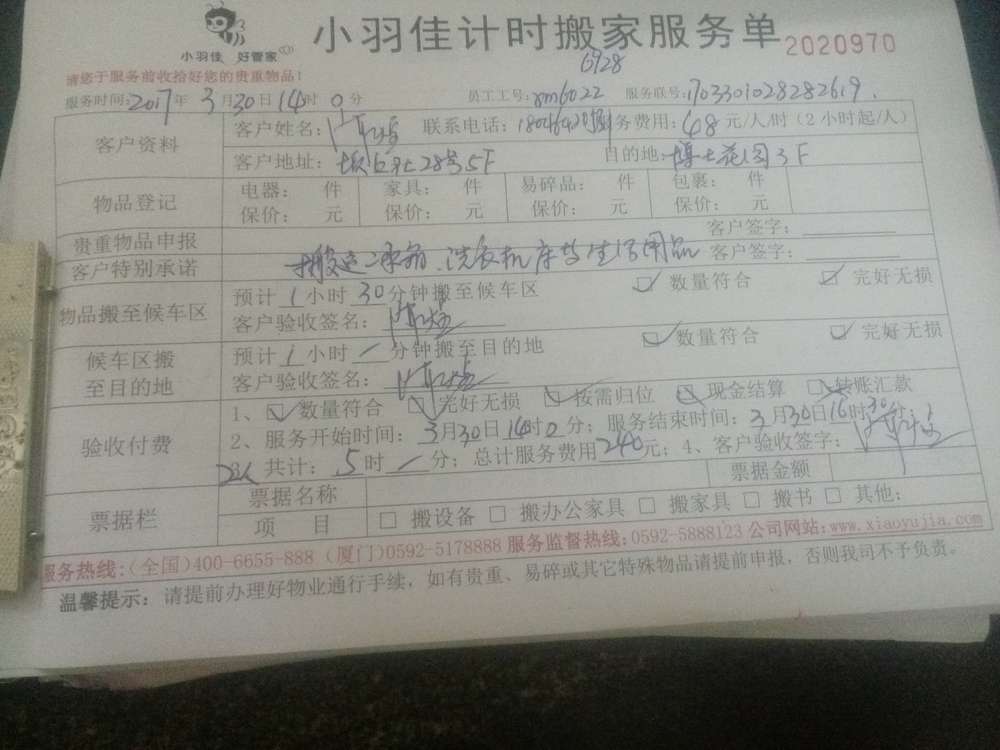 小羽佳 好管家
小羽佳计时搬家服务单 2020970
请您于服务前收拾好您的贵重物品！
6928
服务时间：2017年 3月30日14时0分 员工工号：xm6022 服务联号：1703301028282619
客户资料
客户姓名： 联系电话： 服务费用：68元/人/时（2小时起/人）
客户地址：坂上社28号5F 目的地：博士花园3F
物品登记
电器： 件 家具： 件 易碎品： 件 包裹： 件
保价： 元 保价： 元 保价： 元 保价： 元
贵重物品申报 客户签字：
客户特别承诺 搬运冰箱、洗衣机床等生活用品 客户签字：
物品搬至候车区
预计1小时30分钟搬至候车区 数量符合 完好无损
客户验收签名：
候车区搬至目的地
预计1小时／分钟搬至目的地 数量符合 完好无损
客户验收签名：
验收付费
1、数量符合 完好无损 按需归位 现金结算 转账汇款
2、服务开始时间：3月30日14时0分；服务结束时间：3月30日16时30分
2人 共计：5时／分；总计服务费用240元；4、客户验收签字：
票据栏
票据名称 票据金额
项 目 □ 搬设备 □ 搬办公家具 □ 搬家具 □ 搬书 □ 其他：
服务热线：（全国）400-6655-888（厦门）0592-5178888 服务监督热线：0592-5888123 公司网站：www.xiaoyujia.com
温馨提示：请提前办理好物业通行手续，如有贵重、易碎或其它特殊物品请提前申报，否则我司不予负责。